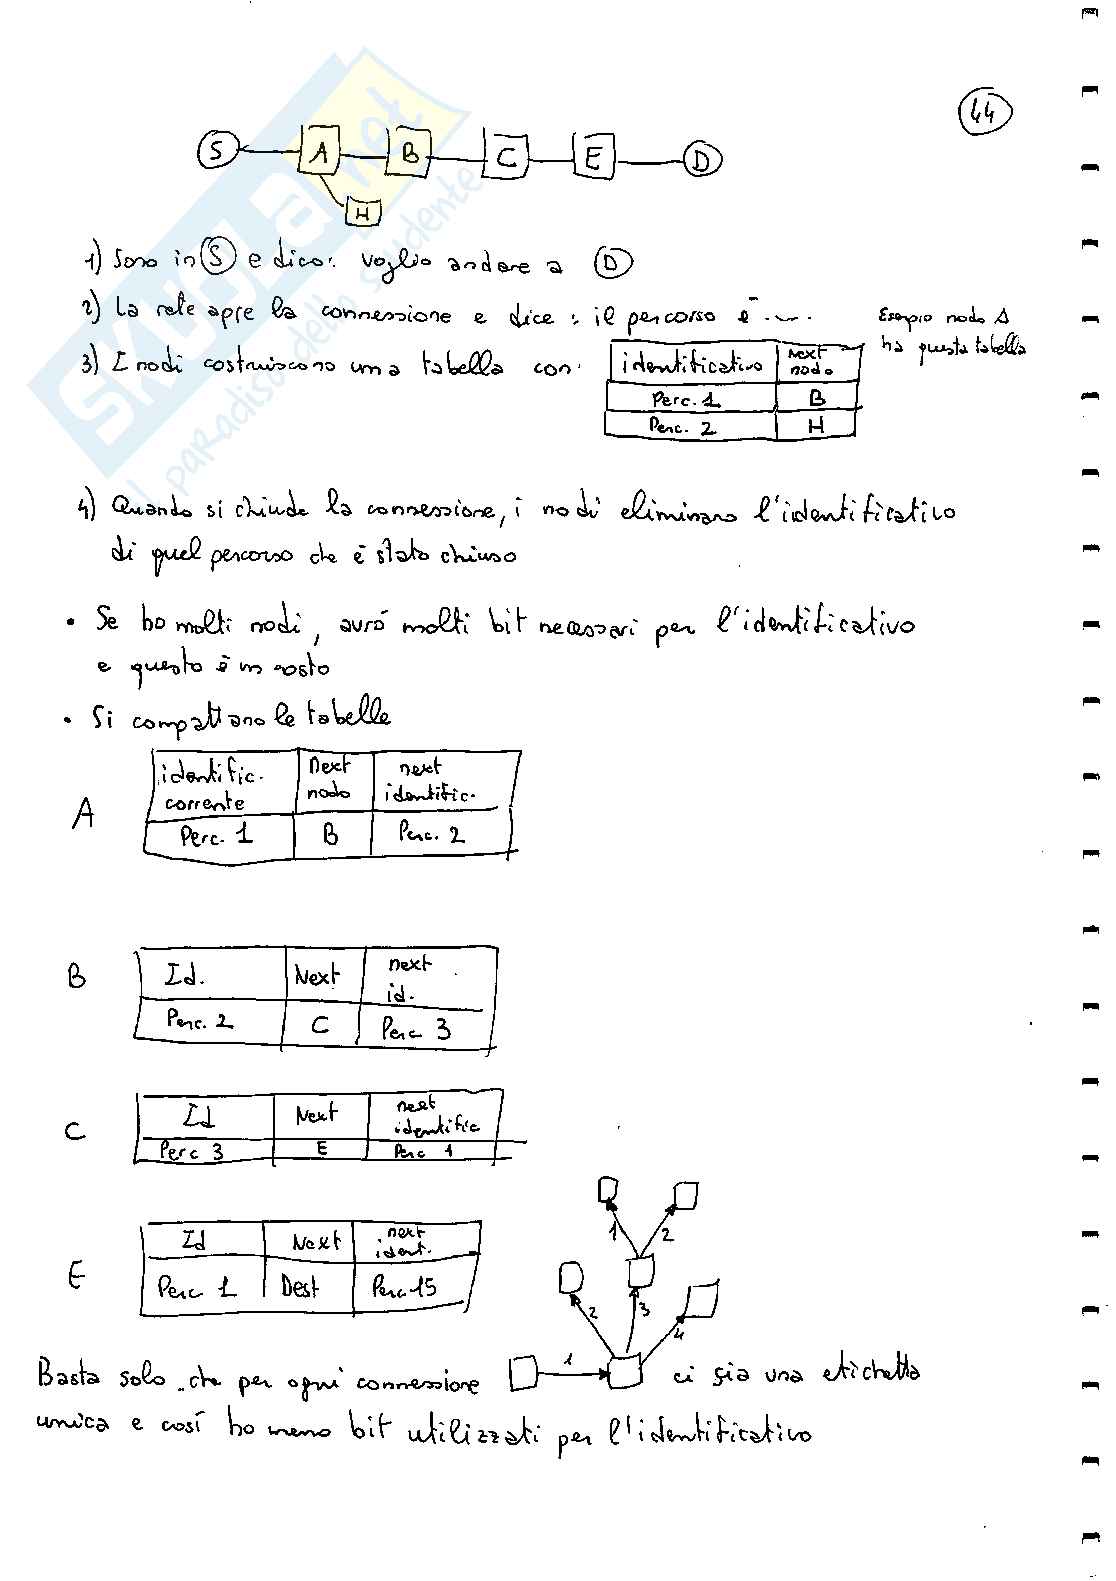 44
S A B C E D
H
1) Sono in S e dico: voglio andare a D
2) La rete apre la connessione e dice: il percorso è ....
Esempio nodo A
ha questa tabella
3) I nodi costruiscono una tabella con:
identificativo next nodo
Perc. 1 B
Perc. 2 H
4) Quando si chiude la connessione, i nodi eliminano l'identificativo
di quel percorso che è stato chiuso
• Se ho molti nodi, avrò molti bit necessari per l'identificativo
e questo è un costo
• Si compattano le tabelle
A
identific. corrente Next nodo next identific.
Perc. 1 B Perc. 2
B
Id. Next next id.
Perc. 2 C Perc 3
C
Id Next next identific
Perc 3 E Perc 1
E
Id Next next ident.
Perc 1 Dest Perc 15
1 2
2 3 4
1
Basta solo che per ogni connessione ci sia una etichetta
unica e così ho meno bit utilizzati per l'identificativo
SKUOLA.net
il paradiso dello studente